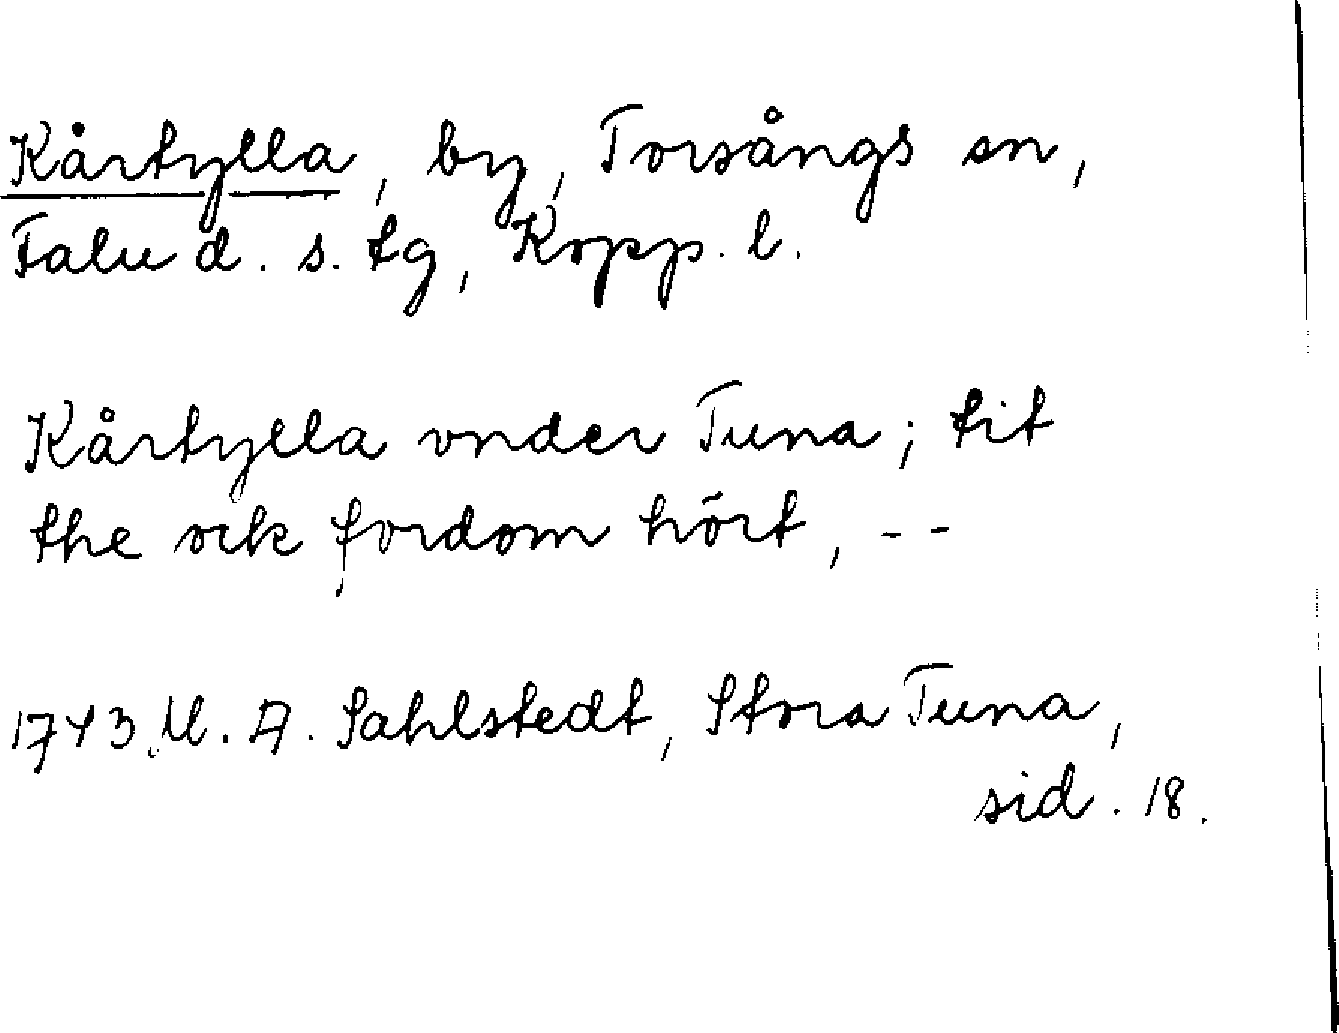 Kårtylla, by, Torsångs sn,
Falu d. s. tg, Kopp. l.
Kårtylla vnder Tuna; tit
the ock fordom hört, --
1743 M. A. Sahlstedt, Stora Tuna,
sid. 18.